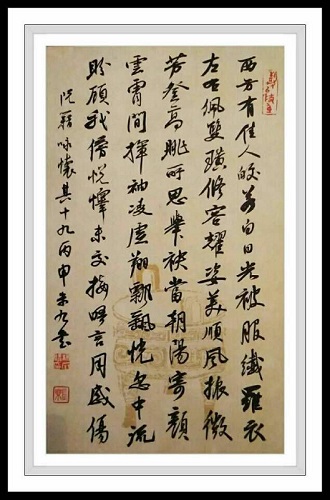 西方有佳人皎若白日光被服纖羅衣
左右佩雙璜修容耀姿美順風振微
芳登高眺所思舉袂當朝陽寄顏
雲霄間揮袖凌虛翔飄飖恍忽中流
盼顧我傍悅懌未交接晤言用感傷
阮籍咏懷其十九丙申